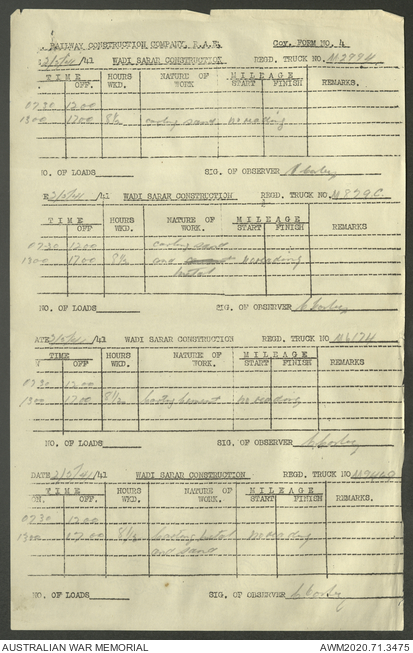 RAILWAY CONSTRUCTION COMPANY, R.A.E. Coy. FORM NO. 4
2/5/41 /41 WADI SARAR CONSTRUCTION REGD. TRUCK NO. M2994
TIME HOURS NATURE OF MILEAGE
OFF. WKD. WORK START FINISH REMARKS.
0730 1200
1300 1700 8½ carting sand no reading
NO. OF LOADS SIG. OF OBSERVER
2/5/41 /41 WADI SARAR CONSTRUCTION REGD. TRUCK NO.
TIME HOURS NATURE OF MILEAGE
OFF WKD. WORK. START FINISH REMARKS
0730 1200 carting sand
1300 1700 8½ and no reading
metal
NO. OF LOADS SIG. OF OBSERVER
ATE 2/5/41 /41 WADI SARAR CONSTRUCTION REGD. TRUCK NO
TIME HOURS NATURE OF MILEAGE
OFF WKD. WORK. START FINISH REMARKS
0730 1200
1300 1700 8½ carting cement no reading
NO. OF LOADS SIG. OF OBSERVER
DATE 2/5/41 /41 WADI SARAR CONSTRUCTION REGD. TRUCK NO
TIME HOURS NATURE OF MILEAGE
ON. OFF. WKD. WORK. START FINISH REMARKS.
0730 1200
1300 1700 8½ carting metal no reading
and sand
NO. OF LOADS SIG. OF OBSERVER
AUSTRALIAN WAR MEMORIAL AWM2020.71.3475